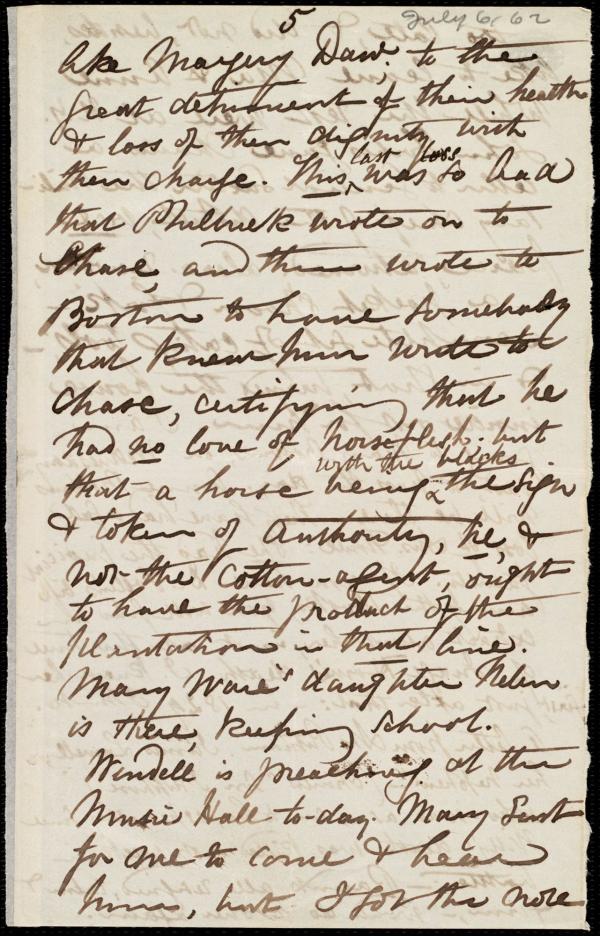 5
July 6, 62
like Margery Daw, to the
great detriment of their health
& loss of their dignity with
their charge. This last loss was so bad
that Philbrick wrote on to
Chase, and then wrote to
Boston to have somebody
that knew him write to
Chase, certifying that he
had no love of horseflesh. but
that a horse being with the blacks the sign
& token of Authority, he, &
not the cotton-agent, ought
to have the product of the
plantation in that line.
Mary Ware's daughter Helen
is there, keeping school.
Wendell is preaching at the
Music Hall to-day. Mary sent
for me to come & hear
him, but I got the note